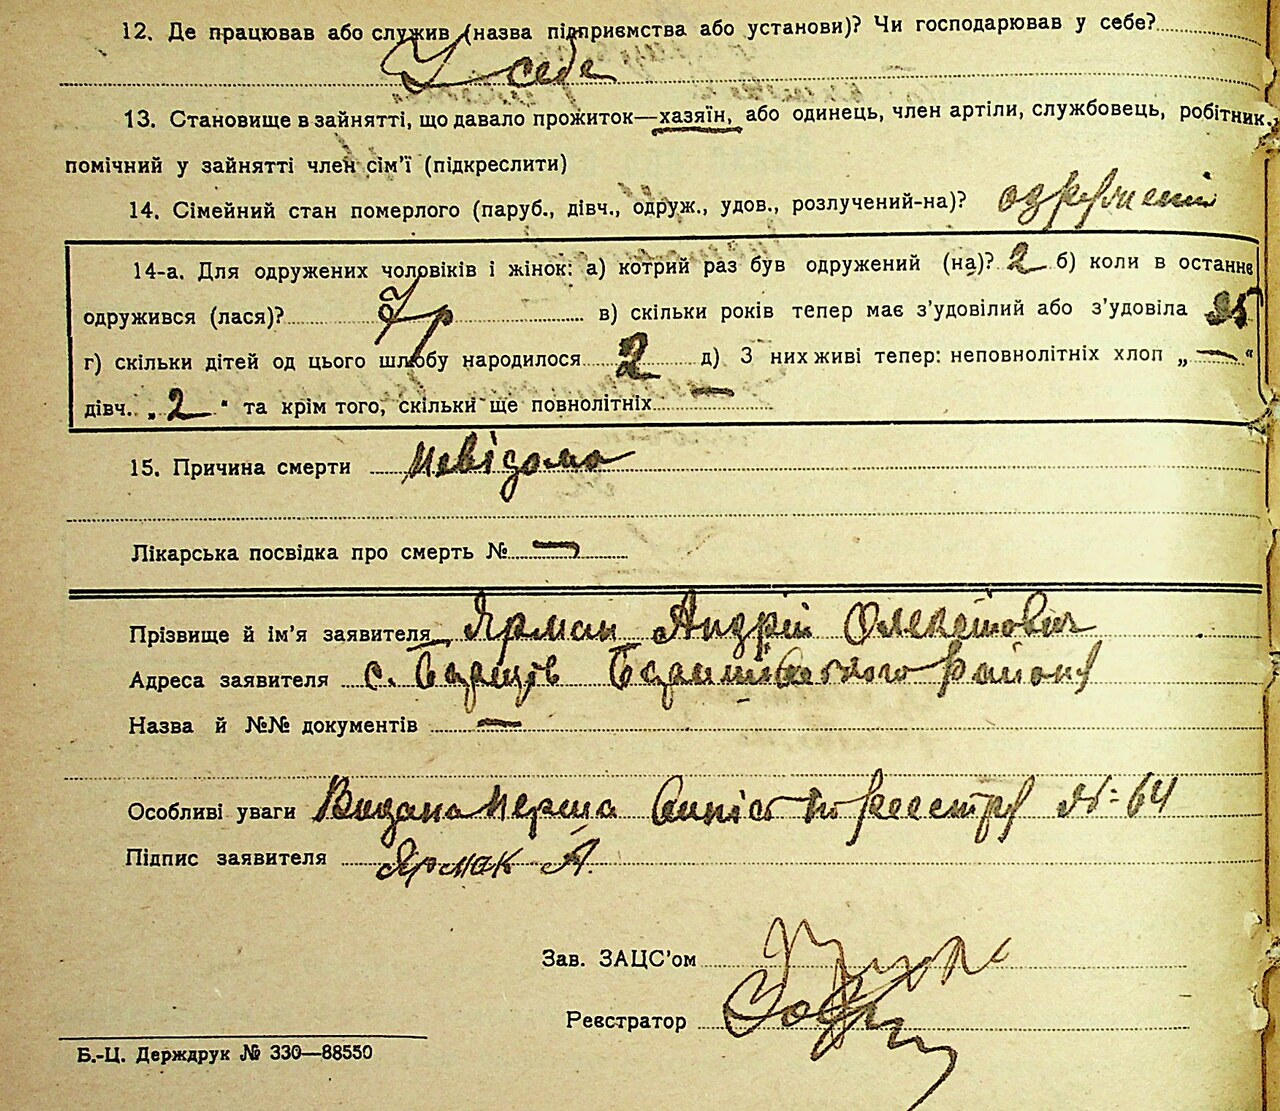 12. Де працював або служив (назва підприємства або установи)? Чи господарював у себе?
У себе
13. Становище в зайнятті, що давало прожиток—хазяїн, або одинець, член артілі, службовець, робітник,
помічний у зайнятті член сім'ї (підкреслити)
14. Сімейний стан померлого (паруб., дівч., одруж., удов., розлучений-на)?
14-а. Для одружених чоловіків і жінок: а) котрий раз був одружений (на)? 2 б) коли в останнє
одружився (лася)? в) скільки років тепер має з'удовілий або з'удовіла
г) скільки дітей од цього шлюбу народилося 2 д) З них живі тепер: неповнолітніх хлоп „ — “
дівч. „ 2 “ та крім того, скільки ще повнолітніх —
15. Причина смерти невідома
Лікарська посвідка про смерть № —
Прізвище й ім'я заявителя Ярмак Андрій
Адреса заявителя с. району
Назва й №№ документів —
Особливі уваги Видана перша по реестру № 64
Підпис заявителя Ярмак А.
Зав. ЗАЦС'ом
Реєстратор
Б.-Ц. Держдрук № 330—88550